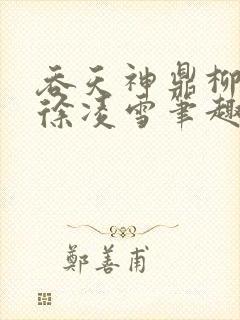 吞天神鼎柳
徐凌雪笔趣
鄭善甫